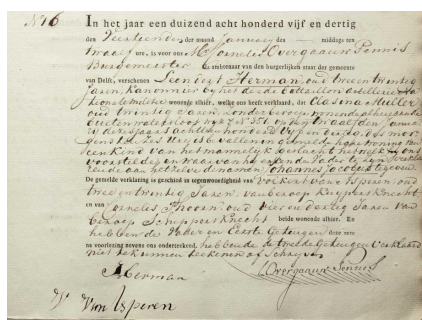 No 16
In het jaar een duizend acht honderd vijf en dertig
den Veertienden der maand Januarij des middags ten
twaalf ure, is voor ons Mr Cornelis Overgaauw Pennis
Burgemeester Ambtenaar van den burgerlijken staat der gemeente
van Delft, verschenen Leendert Herman, oud twee en twintig
Jaren, Kanonnier bij het derde battaillon artillerie Na
tionale Militie wonende alhier, welke ons heeft verklaard, dat Clasina Muller
oud twintig Jaren, zonder beroep, wonende
wijk 7 No 351, op den twaalfden Januarij
dezes jaars achttien honderd Vijf en dertig, des mor
gens ten ure is bevallen
een Kind van het mannelijk geslacht, hetwelk hij ons
voorstelde, en waarvan hij erkende Vader te zijn, verkla
rende aan hetzelve de namen Johannes Jacobus te geven
De gemelde verklaring is geschied in tegenwoordigheid van Volkert van Usperen, oud
twee en twintig Jaren, van beroep Kuypersknecht
en van Cornelis Thoorn, oud vier en dertig Jaren van
beroep Schippersknecht beide wonende alhier. En
hebben de Vader en Eerste Getuigen deze
na voorlezing nevens ons onderteekend, hebbende de tweede Getuigen verklaard
niet te kunnen teekenen of Schrijven
Herman
C Overgaauw Pennis
V Van Usperen